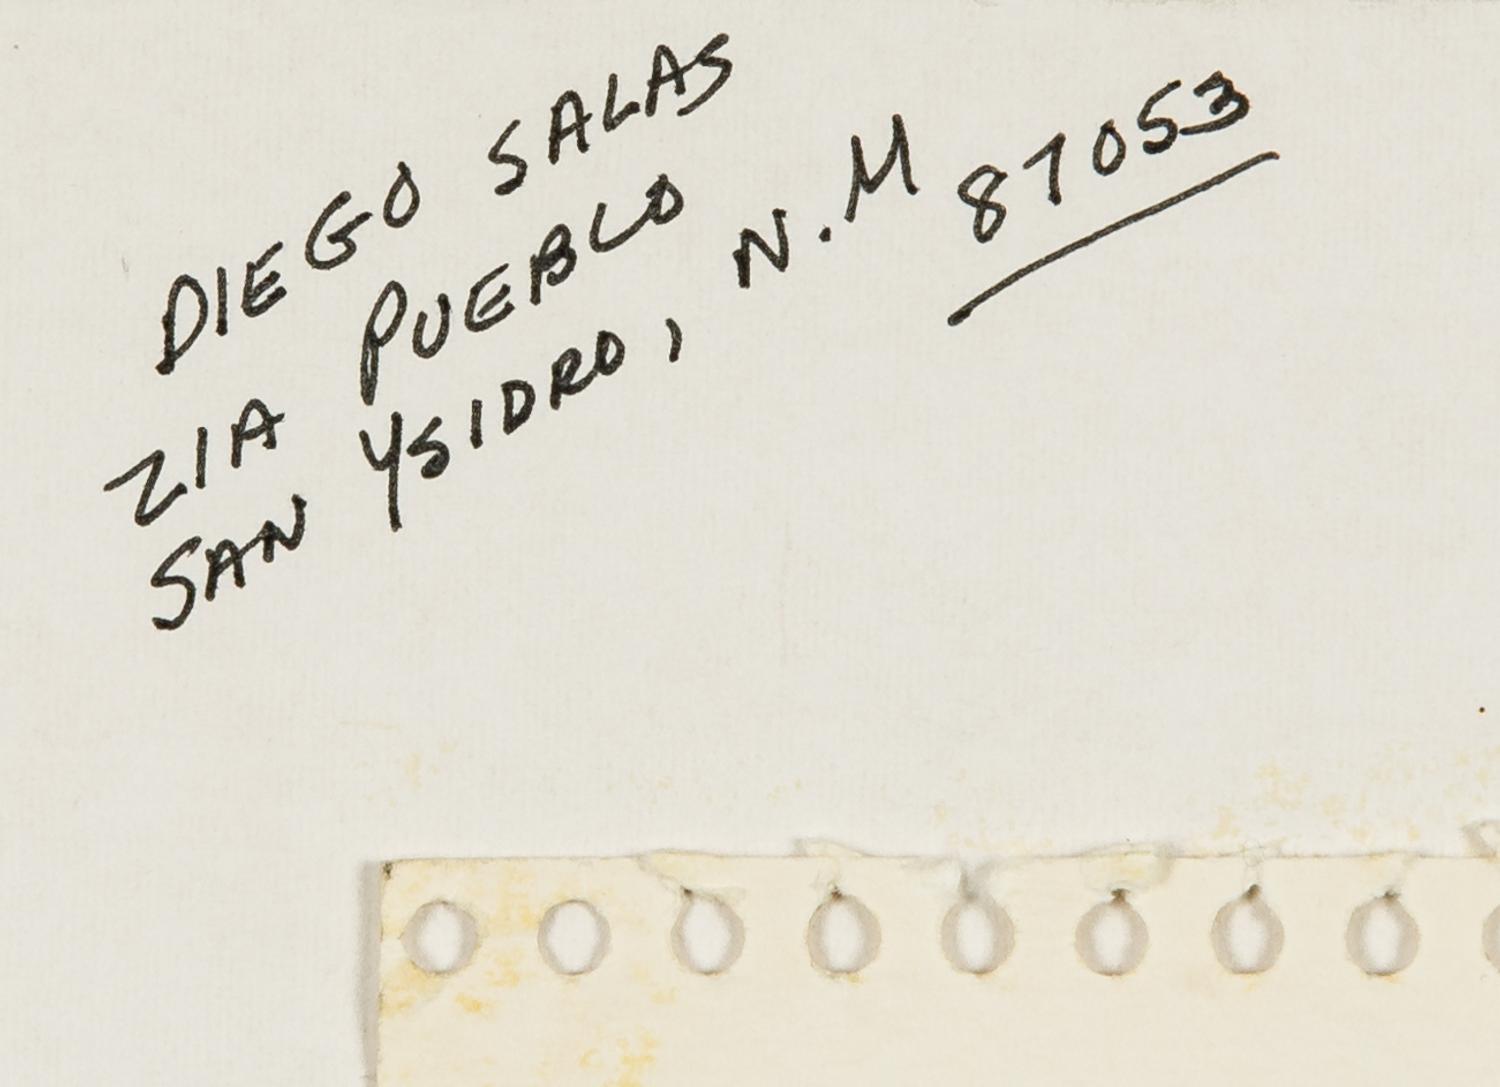 DIEGO SALAS
ZIA PUEBLO
SAN YSIDRO, N.M 87053